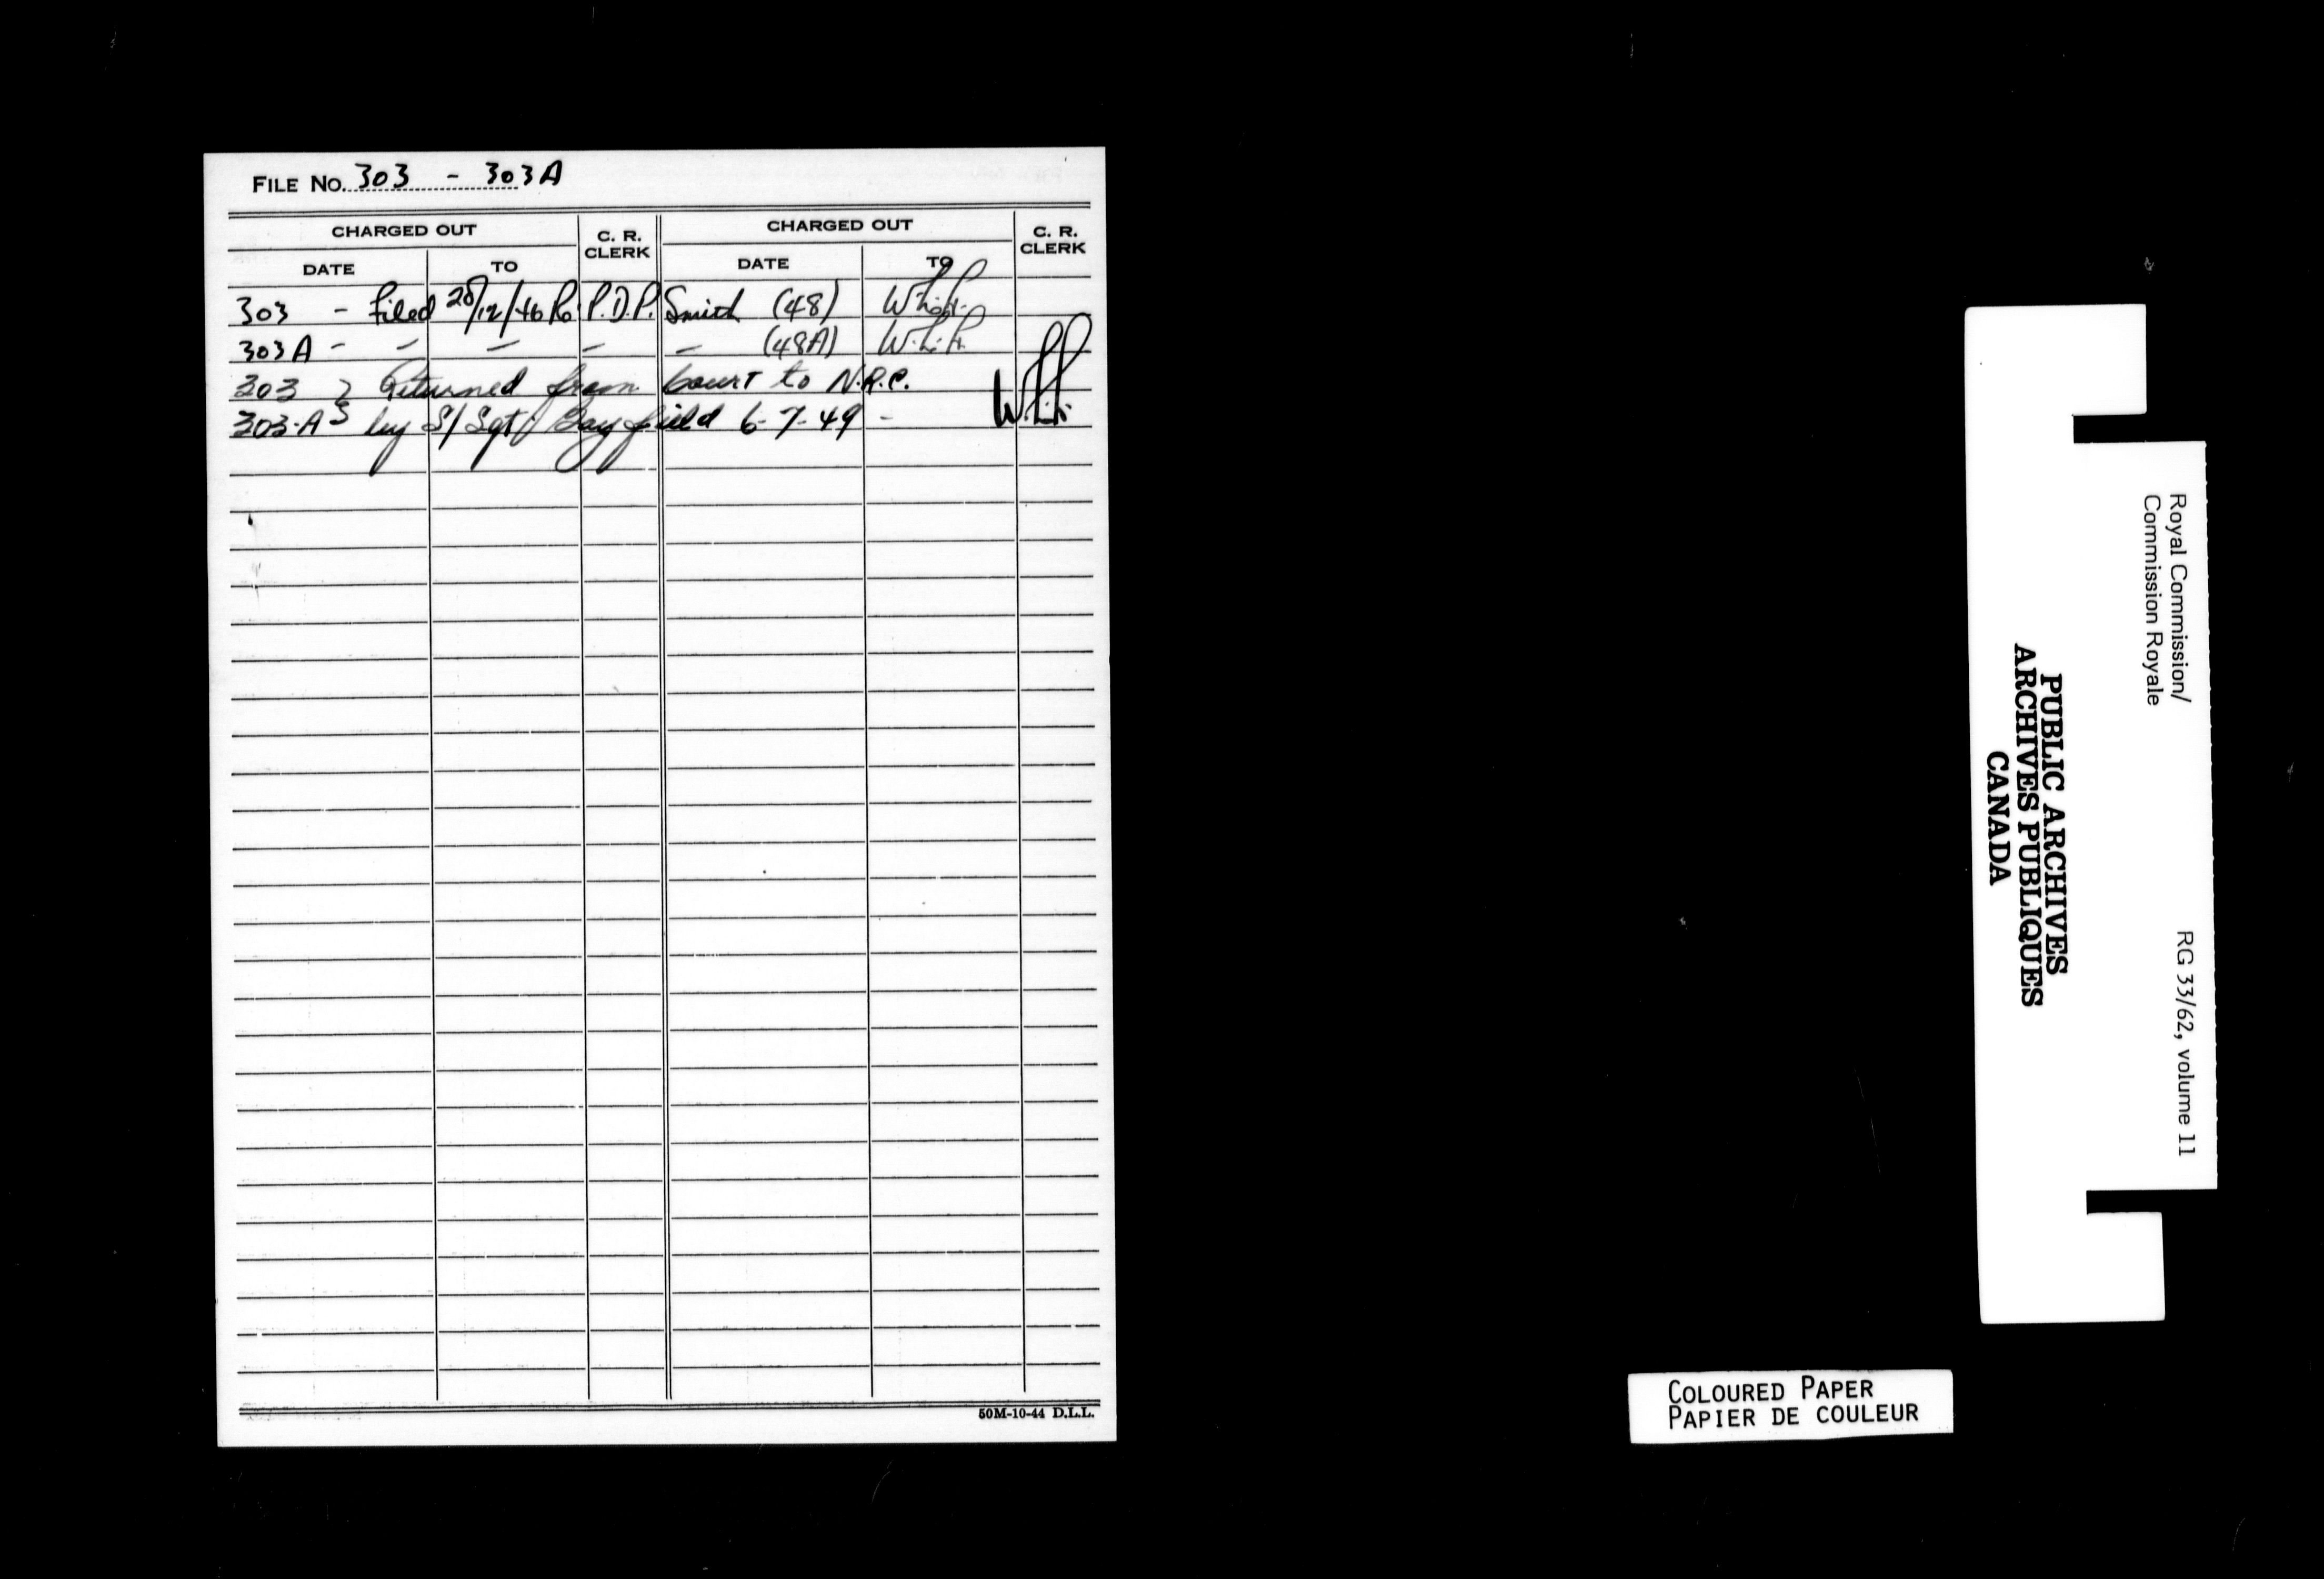 FILE No. 303 - 303A
CHARGED OUT C. R. CLERK CHARGED OUT C. R. CLERK
DATE TO DATE TO
303 - Filed 28/12/46 Ro. P.D.P. Smith (48)
303A - - - - - (48A)
303 } Returned from Court to N.R.C.
303-A } by S/Sgt Bayfield 6-7-49 -
50M-10-44 D.L.L.
Royal Commission/
Commission Royale
RG 33/62, volume 11
PUBLIC ARCHIVES
ARCHIVES PUBLIQUES
CANADA
COLOURED PAPER
PAPIER DE COULEUR